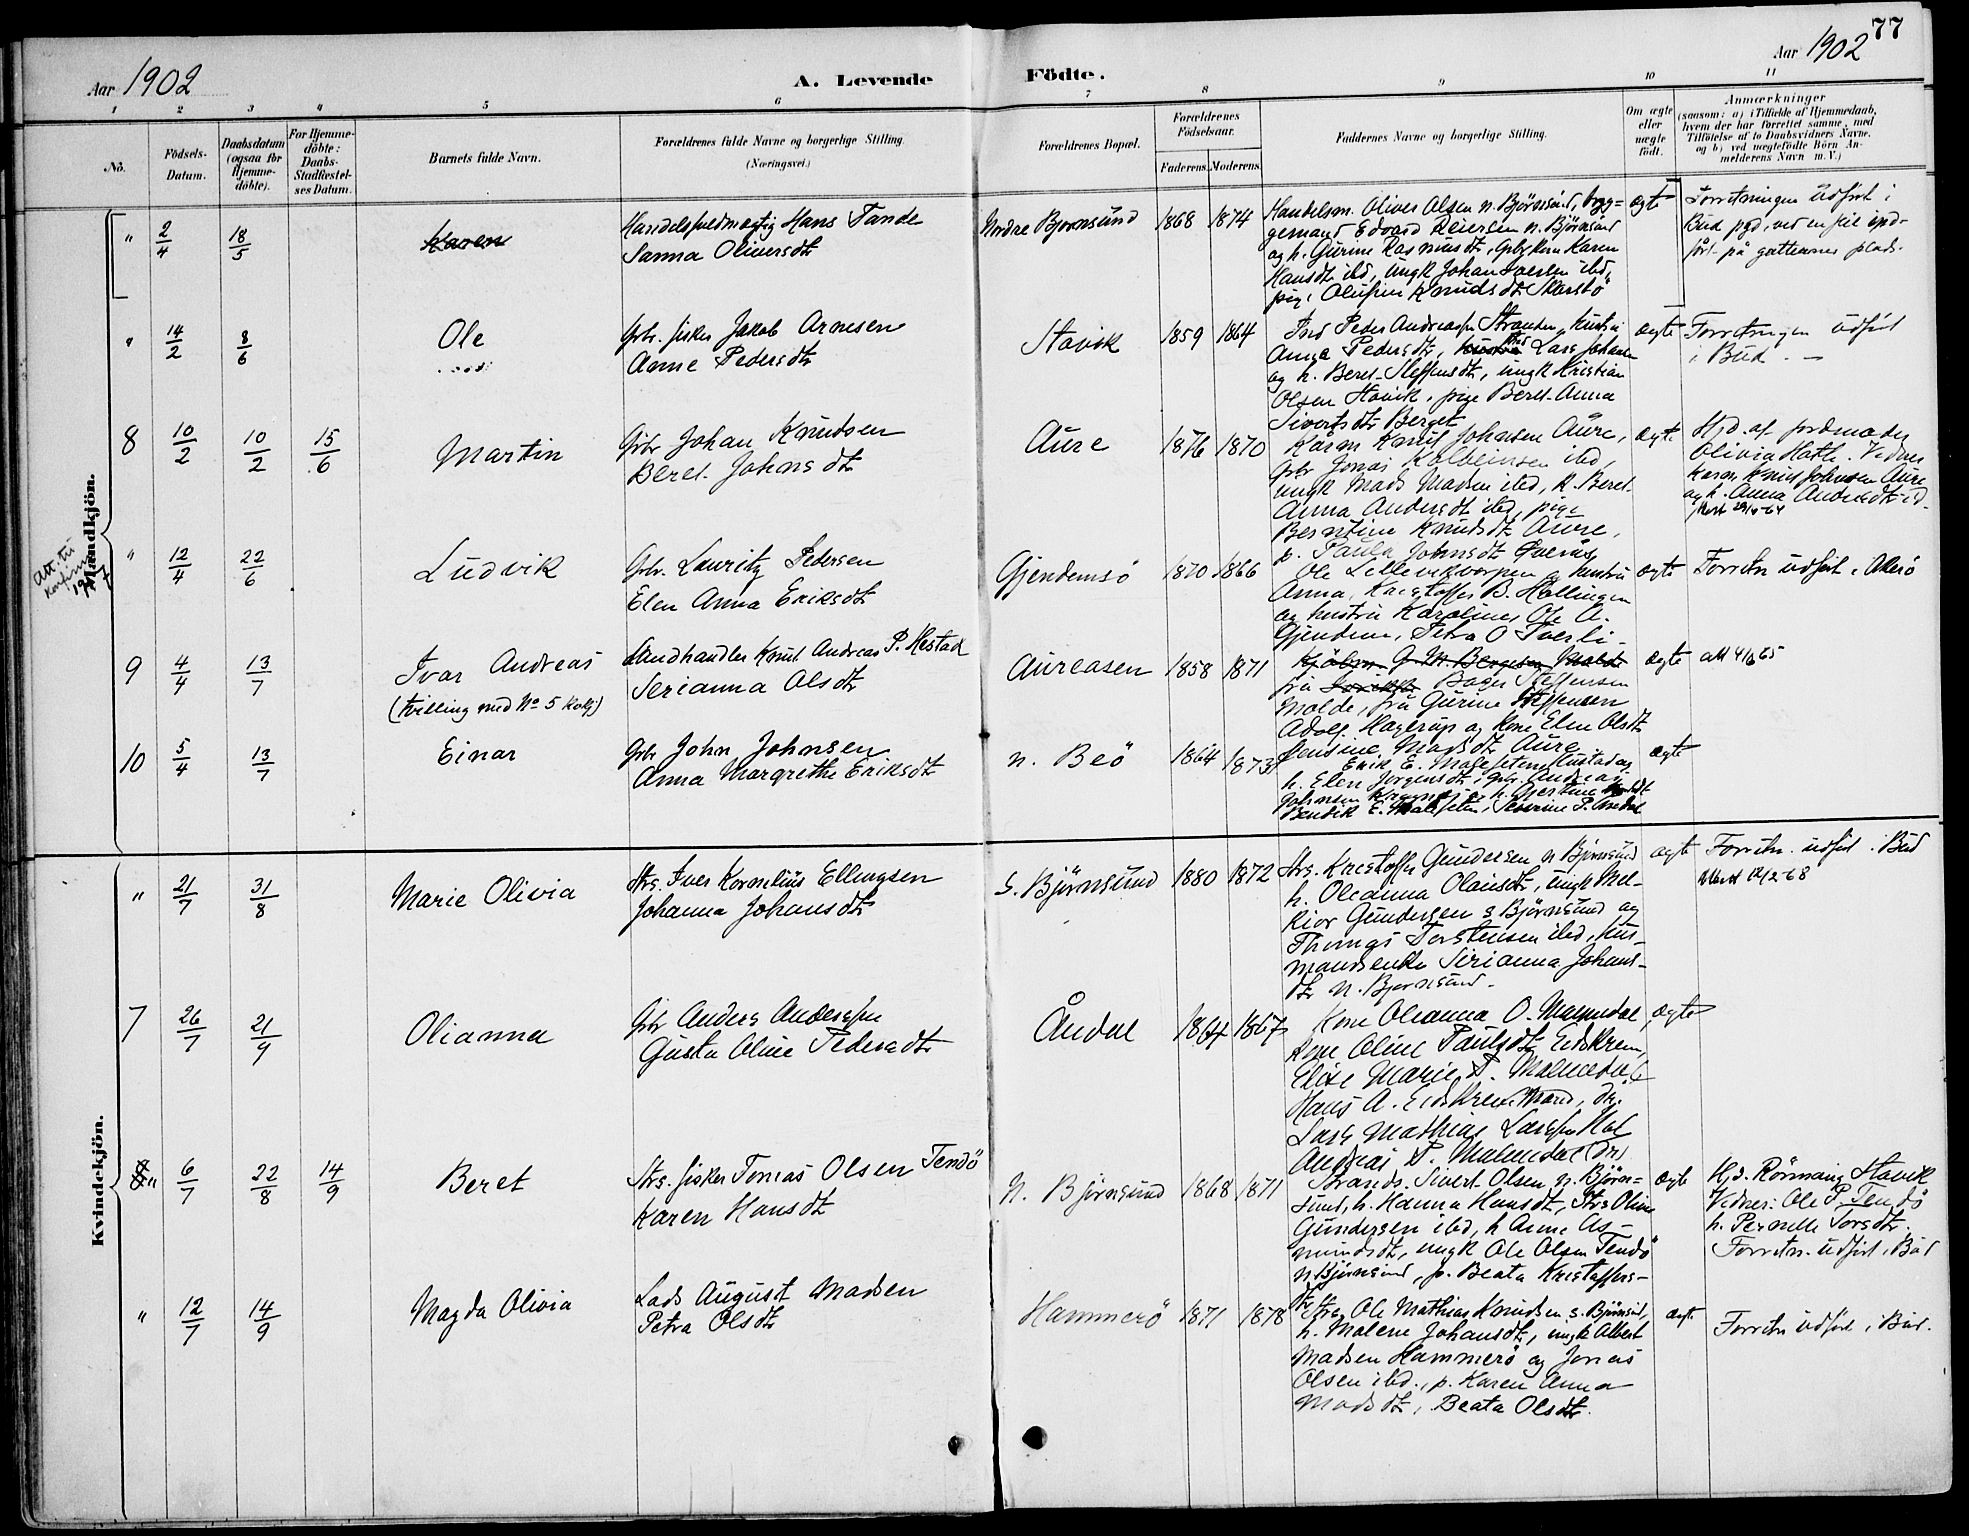 77
Aar 1902
A. Levende Födte.
Aar 1902
1 2 3 4 5 6 7 8 9 10 11
No.
Födsels-Datum.
Daabsdatum (ogsaa for Hjemme-döbte).
For Hjemme-döbte: Daabs-Stadfæstel-ses Datum.
Barnets fulde Navn.
Forældrenes fulde Navne og borgerlige Stilling.
(Næringsvei.)
Forældrenes Bopæl.
Forældrenes Födselsaar.
Faderens. Moderens.
Faddernes Navne og borgerlige Stilling.
Om ægte eller uægte födt.
Anmærkninger
(saasom: a) i Tilfælde af Hjemmedaab,
hvem der har forrettet samme, med
Tilföielse af to Daabsvidners Navne,
og b) ved uægtefödte Börn An-
melderens Navn m. V.)
Mandkjön.
" 2/4 18/5 Karen
Hans Tande
Sanna Oliversdtr
Nordre Bjornsund 1868 1874
Handelsm. Oliver Olsen n. Björnsund, bryg-
gemand Edvard Reiersen n. Björnsund
og h. Gurine Rasmusdtr, Karen
Hansdtr ibd, ungk Johan Iversen ibd,
pige Olufine Knudsdtr
ægte
Forretningen udfört i
Bud
" 14/2 8/6 Ole
Gbr. fisker Jakob Arnesen
Anne Pedersdtr
Stavik 1859 1864
Peder Andreassen Stranden, hustru
Anne Pedersdtr, Lars Johansen
og h. Beret Steffensdtr, ungk Kristian
Olsen Stavik, pige Beret Anna
Sivertsdtr Berget
ægte
Forretningen udfört
i Bud. —
8 10/2 10/2 15/6 Martin
Gbr Johan Knudsen
Beret Johnsdtr
Aure 1876 1870
Kaarm Knud Johnsen Aure,
Gbr Jonas Kolbeinsen ibd,
ungk Mads Madsen ibd, k. Beret
Anna Andersdtr ibd, pige
Berntine Knudsdtr Aure,
p. Paula Johnsdtr
ægte
Hjd. af jordmoder
Olivia Hatle. Vidner
Kaarm Knud Johnsen Aure
og h. Anna Andersdtr ibd.
Att. til
Konfirm
1917
" 12/4 22/6 Ludvik
Gbr. Lauritz Pedersen
Elen Anna Eriksdtr
Gjendemsö 1870 1866
Ole Lillevikvorpen, hustru
Anna, Kristoffer B. Hollingen
og hustru Karoline, Ole A.
Gjendem, Petra O Tverli
ægte
Forretn udfört i Akerö
9 4/4 13/7 Ivar Andreas
(tvilling med No 5 kvkj)
Landhandler Knut Andreas P. Hestad
Serianna Olsdtr
Aureosen 1858 1871
Kjöbm. G. M. Bergesen Molde
fru Bager Steffensen
Molde, fru Gurine Steffensen
Adolf Hagerup og kone Elen Olsdtr
Madsdtr Aure
ægte
att 4/6 65
10 5/4 13/7 Einar
Gbr John Johnsen
Anna Margrethe Eriksdtr
n. Beö 1864 1873
Erik E. Malesæten Hustad og
h. Elen Jörgensdtr, gbr. Andreas
Johnsen
Bendik E. Malesæten, Severine P.
ægte
Kvindekjön.
" 21/7 31/8 Marie Olivia
Strs. Iver Kornelius Ellingsen
Johanna Johansdtr
S. Björnsund 1880 1872
Strs. Kristoffer Gundersen n Björnsund
h. Oleanna Olausdtr, ungk Mel-
kior Gundersen s Björnsund og
Thomas Torstensen ibd, hus-
mandsenke Serianna Johans-
dtr n. Bjornsund.
ægte
Forretn. udfört i Bud
Attest 12/2-68
7 26/7 21/9 Olianna
Gbr Anders Anderssen
Gusta Oline Pedersdtr
Åndal 1864 1867
Kone Oleanna O. Malmedal
Kone Oline Paulsdtr Eidskrem,
Elise Marie P. Malmedal
Hans A. Eidskrem, Mand, Dr.
Lars Mathias Larssen Hol
Andreas P. Malmedal Dr.
ægte
8 " 6/7 22/8 14/9 Beret
Strs. fisker Tomas Olsen Tendö
Karen Hansdtr
N. Björnsund 1868 1871
Strands. Sivert Olsen n. Björn-
sund, h. Hanna Hansdtr, Strs Oliver
Gundersen ibd, h Anne As-
mundsdtr, ungk Ole Olsen Tendö
n. Björnsund, p. Beata Kristoffers-
dtr
ægte
Hjd. Stavik
Vidner: Ole P. Tendö
h. Pernelle Torsdtr.
Forretn. udfört i Bud
" 12/7 14/9 Magda Olivia
Lods August Madsen
Petra Olsdtr
Hammerö 1871 1878
Strs Ole Mathias Knudsen s. Björnsund,
h. Malene Johansdtr, ungk Albert
Madsen Hammerö og Jonas
Olsen ibd., p. Karen Anna
Madsdtr, Beata Olsdtr.
ægte
Forretn udfört i Bud.